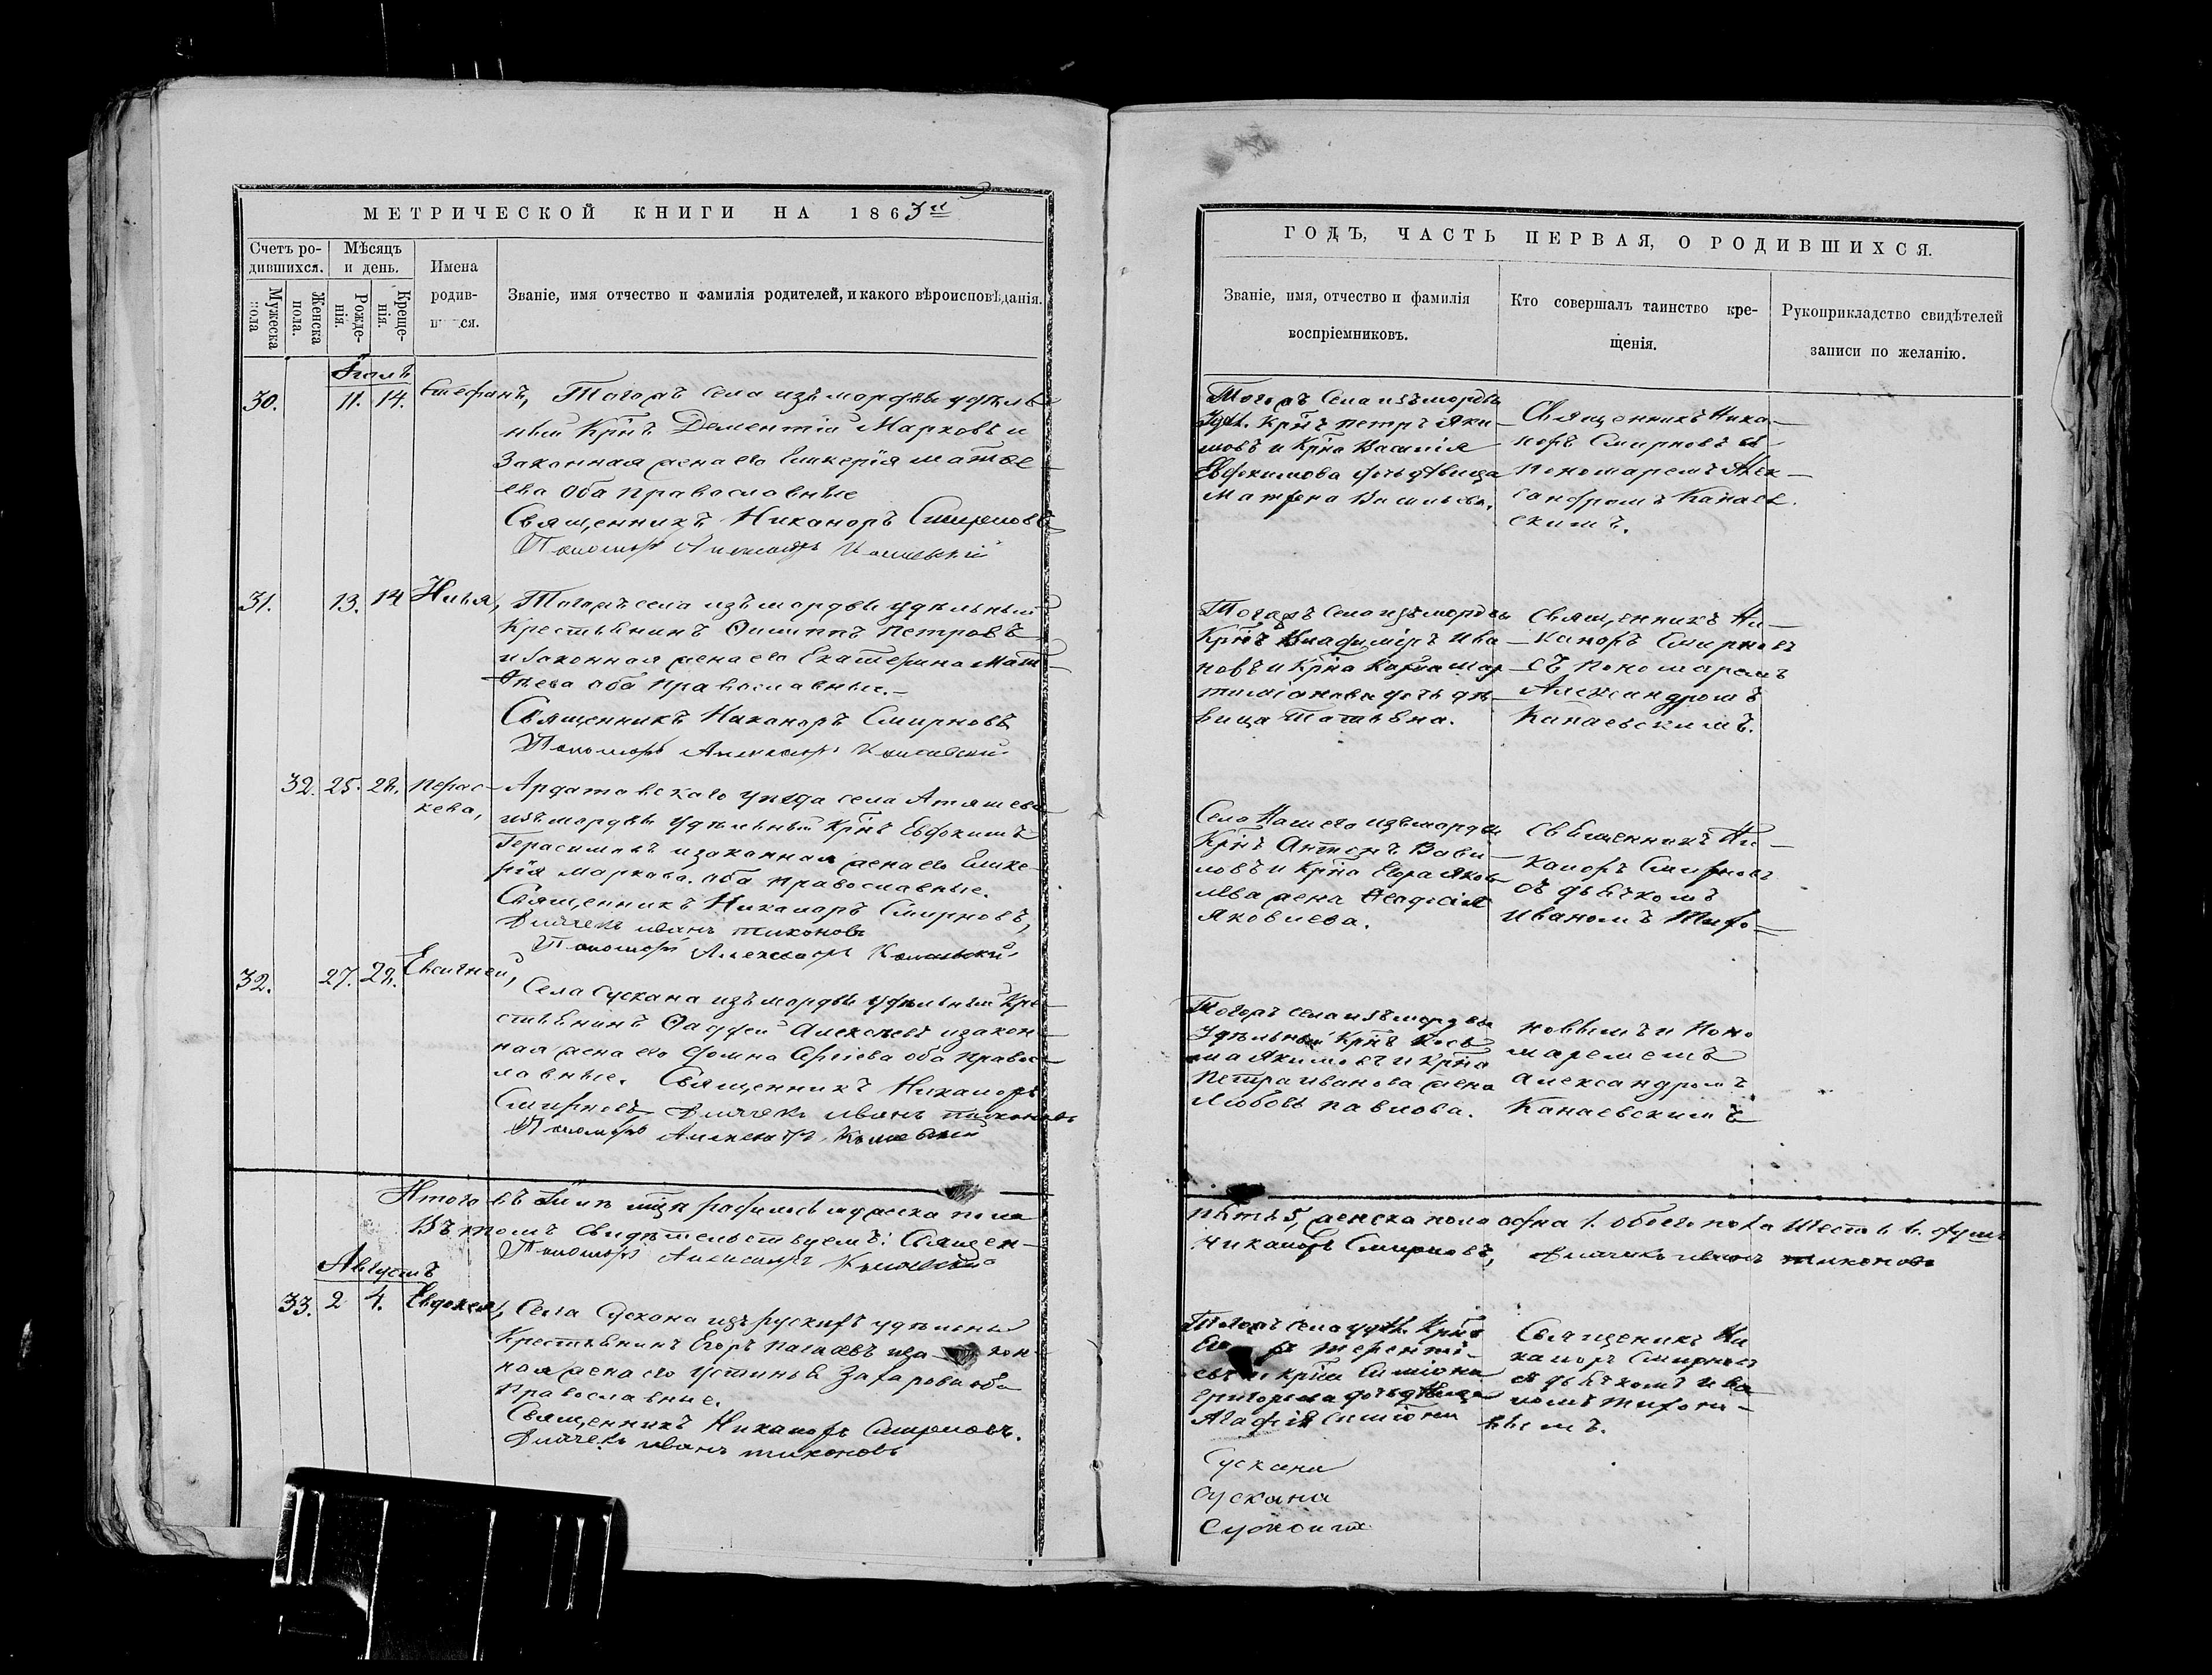 МЕТРИЧЕСКОЙ КНИГИ НА 1863й
Счетъ ро-
дившихся.
Мѣсяцъ
и день.
Мужеска
пола
Женска
пола.
Рожде-
нія.
Креще-
нія.
Имена
родив-
ся.
Званіе, имя отчество и фамилія родителей, и какого вѣроисповѣданія.
30.
11. 14.
Стефанъ,
Тогожъ села изъ мордвы удѣль
ный Крнъ Дементій Марковъ и
Законная жена его Гликерія Матве
ева Оба православные
Священникъ Никаноръ Смирновъ
31.
13. 14
Илья,
Тогожъ села изъ мордвы удѣльный
Крестьянинъ Филиппъ Петровъ
и Законная жена его Екатерина Мат
ѳѣева оба Православные.
Священникъ Никаноръ Смирновъ
32. 25. 28.
Парас-
кева,
Ардатовскаго уѣзда села Атяшева
изъ мордвы Удѣльный Крнъ Евдокимъ
Герасимовъ и законная жена его Глике-
рія Маркова. оба Православные.
Священникъ Никаноръ Смирновъ,
Дьячекъ Иванъ Тихоновъ
32.
27. 28.
Евсигней,
Села Сускана изъ мордвы удѣльный Кре-
стьянинъ Фаддей Алексѣевъ и закон-
ная жена его Домна оба Правос-
лавные. Священникъ Никаноръ
Смирновъ Дьячекъ Иванъ Тихоновъ
Итого въ Іюлѣ родилось мужеска пола
Въ томъ Свидѣтельствуемъ: Священ-
Августъ
33. 2 4.
Евдокея,
Села Сускана изъ рускихъ удѣльны
Крестьянинъ Егоръ
ная жена его Устинья Захарова оба
Православные.
Священникъ Никаноръ Смирновъ.
Дьячекъ Иванъ Тихоновъ
ГОДЪ, ЧАСТЬ ПЕРВАЯ, О РОДИВШИХСЯ.
Званіе, имя, отчество и фамилія
воспріемниковъ.
Кто совершалъ таинство кре-
щенія.
Рукоприкладство свидѣтелей
записи по желанію.
Тогожъ Села изъ мордвы
Удѣл. Крнъ Петръ Яки-
мовъ и Крна Василія
Евдокимова дочь дѣвица
Матрена Васильева.
Священникъ Ника-
норъ Смирновъ съ
Пономаремъ Алек-
сандромъ Канаев
скимъ.
Тогожъ Села изъ мордвы
Крнъ Владиміръ Ива-
новъ и Крна Мар
дочь дѣ-
вица Татьяна.
Священникъ Ни-
каноръ Смирновъ
съ Пономаремъ
Александромъ
Канаевскимъ.
Села Нашего изъ мордвы
Крнъ Антонъ Вави-
ловъ и Крна Егора Яков
лева жена
Яковлева.
Священникъ Ни-
каноръ Смирновъ
съ дьячкомъ
Иваномъ Тихо-
Тогожъ села изъ мордвы
Удѣльный Крнъ Кось
ма Якимовъ и Крна
Петра Иванова жена
Любовь Павлова.
новымъ и Поно
маремъ
Александромъ
Канаевскимъ
пять 5, женска пола одна 1. обоего пола Шесть 6. душъ
Никаноръ Смирновъ, Дьячекъ Иванъ Тихоновъ
Тогожъ села удѣл. Крнъ
Теренті-
евъ и крна Симіона
Григорьева дочь дѣвица
Агафія Симіона
Священникъ Ни
каноръ Смирновъ
съ дьячкомъ Ива
номъ Тихоно-
вымъ.
Сускана
Сускана